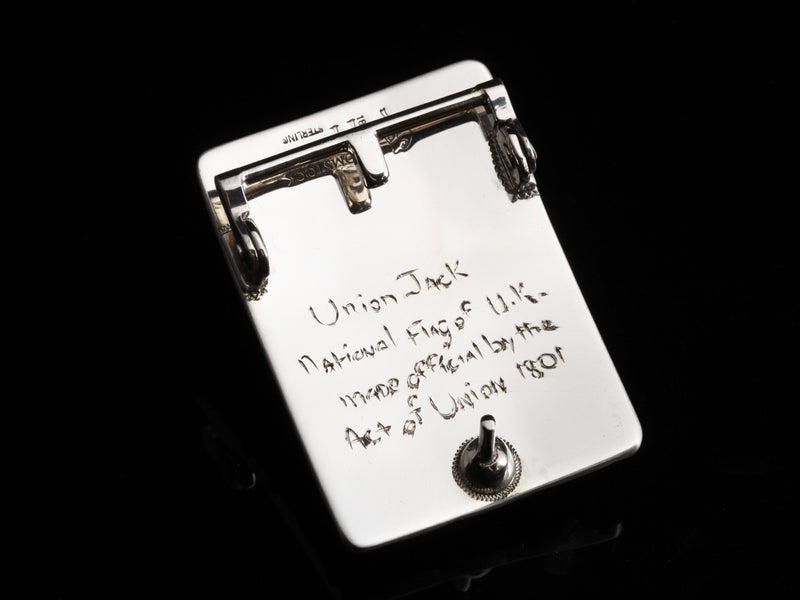 STERLING
Union Jack
National Flag of U.K.
made official by the
Act of Union 1801